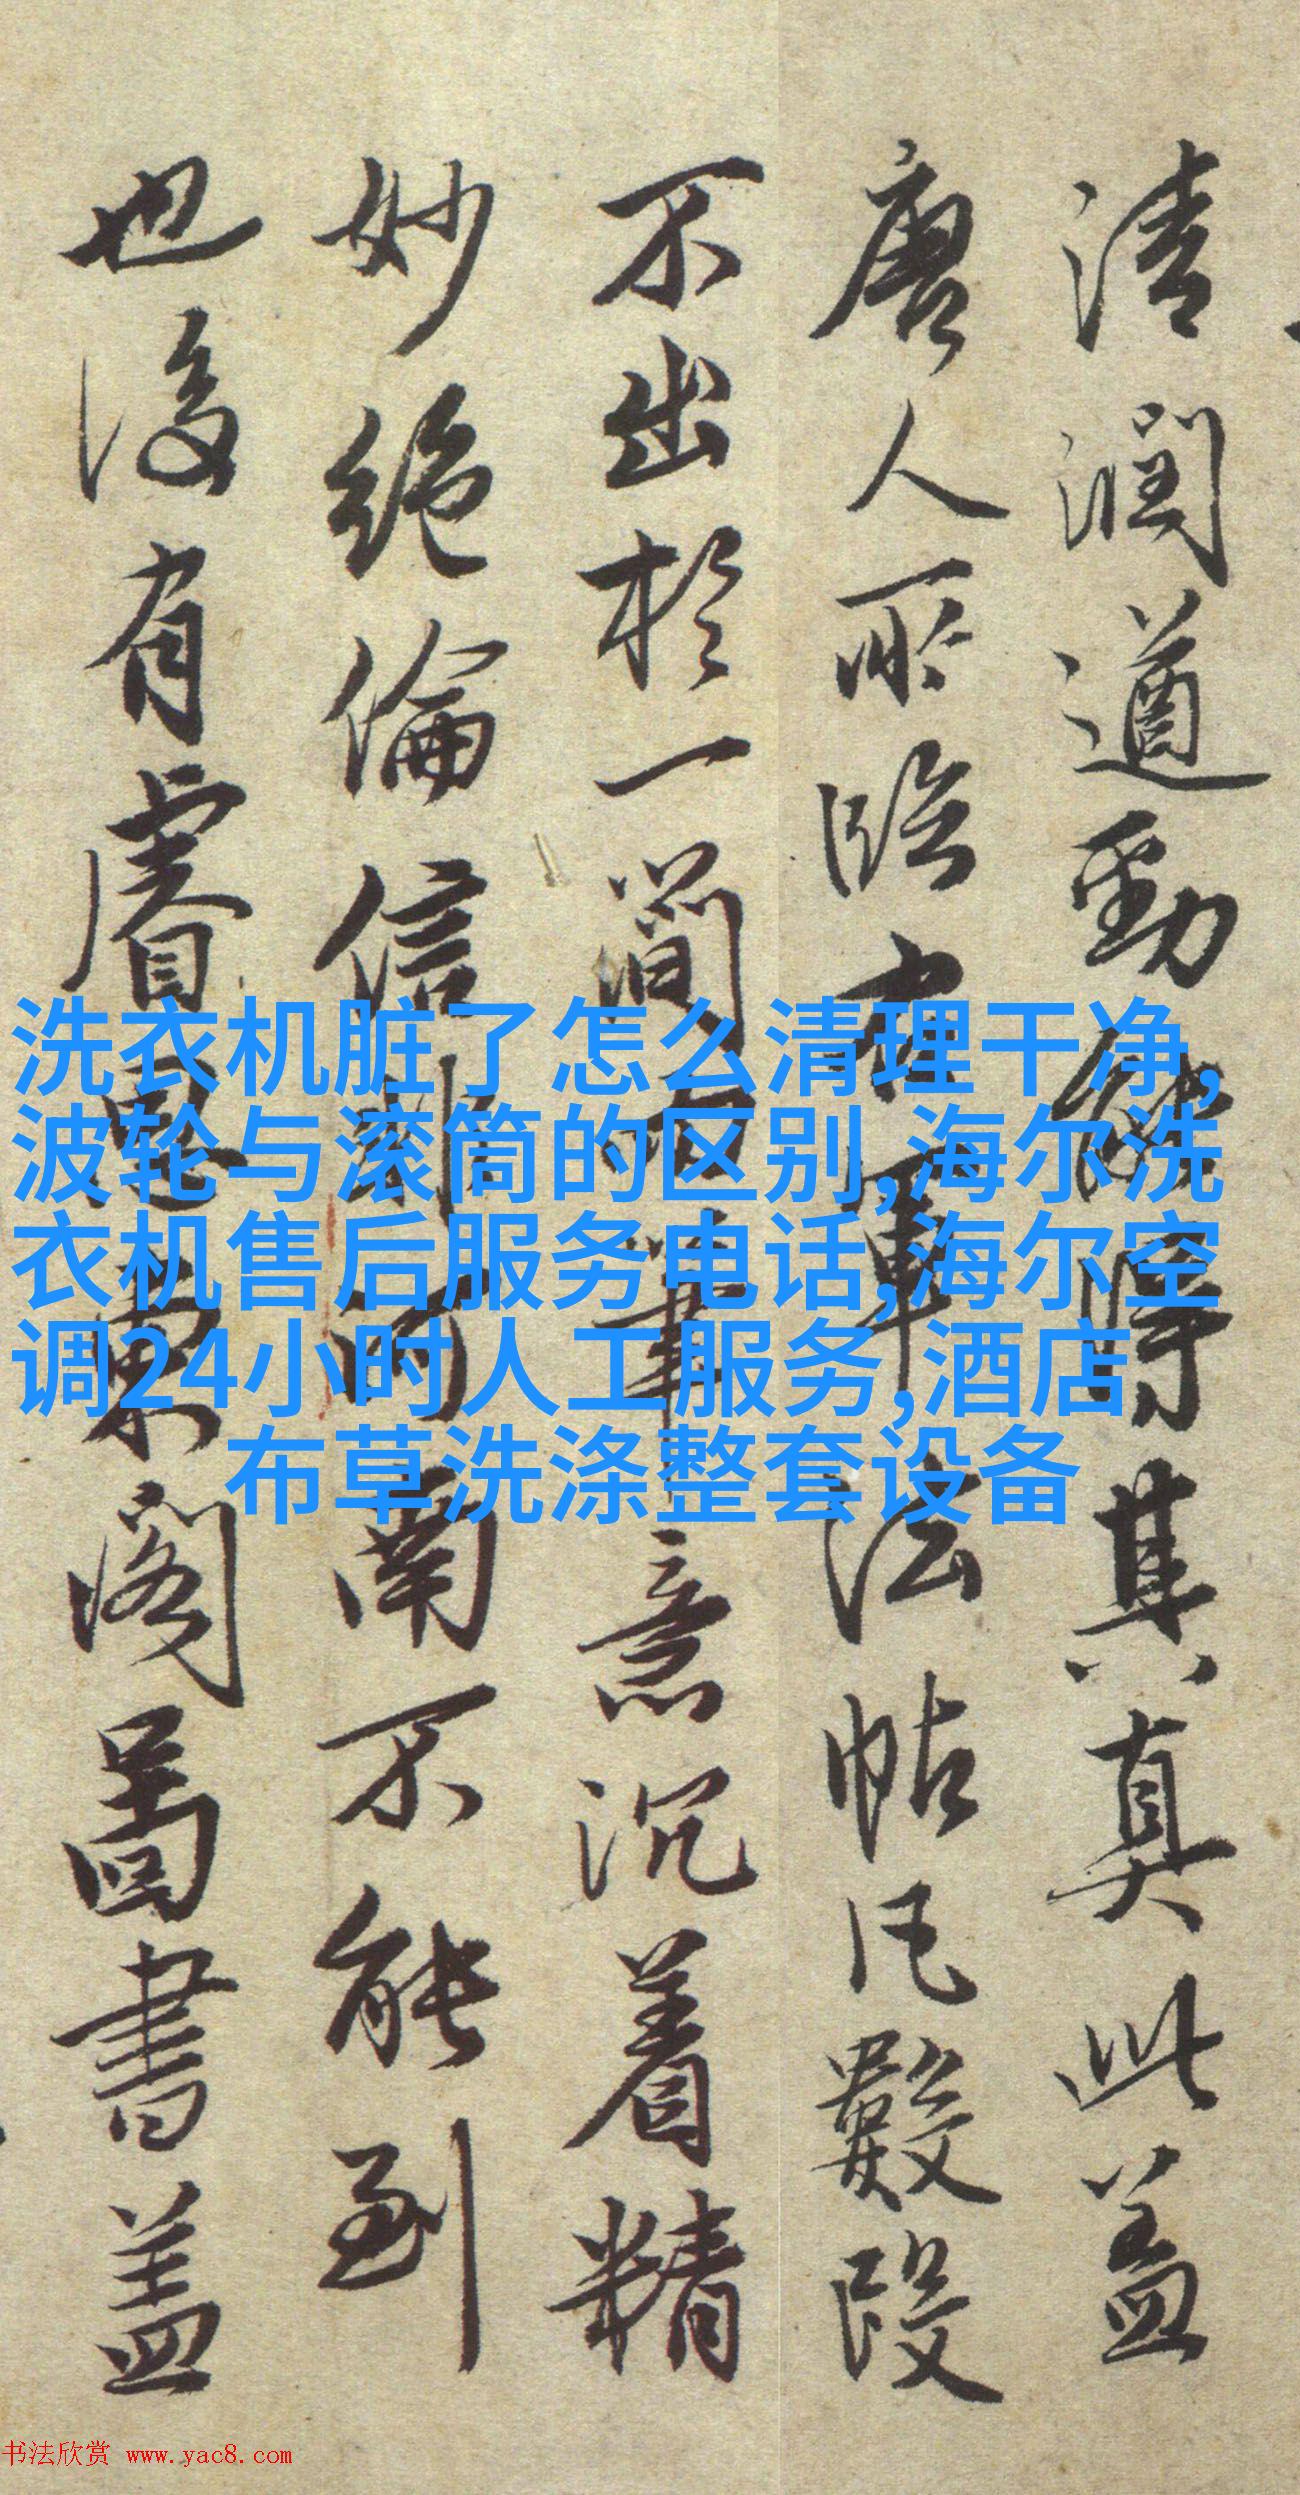 清潤遒勁能得其真此盖
唐人所臨右軍法帖凡數段
不出於一簡而筆意沉着精
妙絕倫信非河南不能到
也後有睿思東閣圖書盖
洗衣机脏了怎么清理干净,
波轮与滚筒的区别,海尔洗
衣机售后服务电话,海尔空
调24小时人工服务,酒店
布草洗涤整套设备
书法欣赏 www.yac8.com